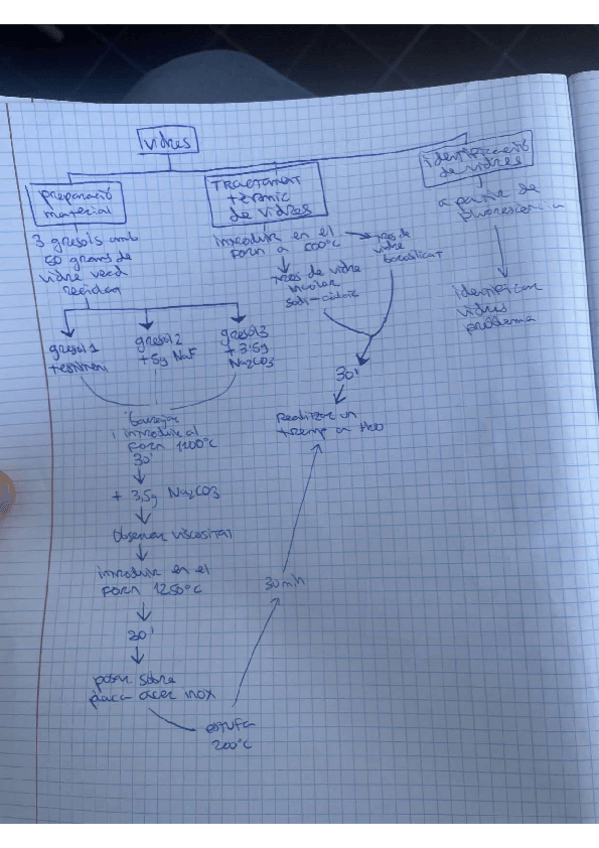 vidres
preparació
material
3 gresols amb
50 grams de
vidre verd
gresol 1
testimoni
gresol 2
+ 5g NaF
gresol 3
+ 3.5g
Na2CO3
introduir al
Forn 1200°C
30'
+ 3,5g Na2CO3
Observar viscositat
introduir en el
Forn 1250°C
30'
posar sobre
placa acer inox
estufa
200°C
30 min
Tractament
tèrmic
de vidres
introduir en el
Forn a 600°C
tires de vidre
incolor
vidre
borosilicat
30'
Realitzar un
tremp a H2O
identificació
de vidres
a partir de
fluorescència
identificar
vidres
problema